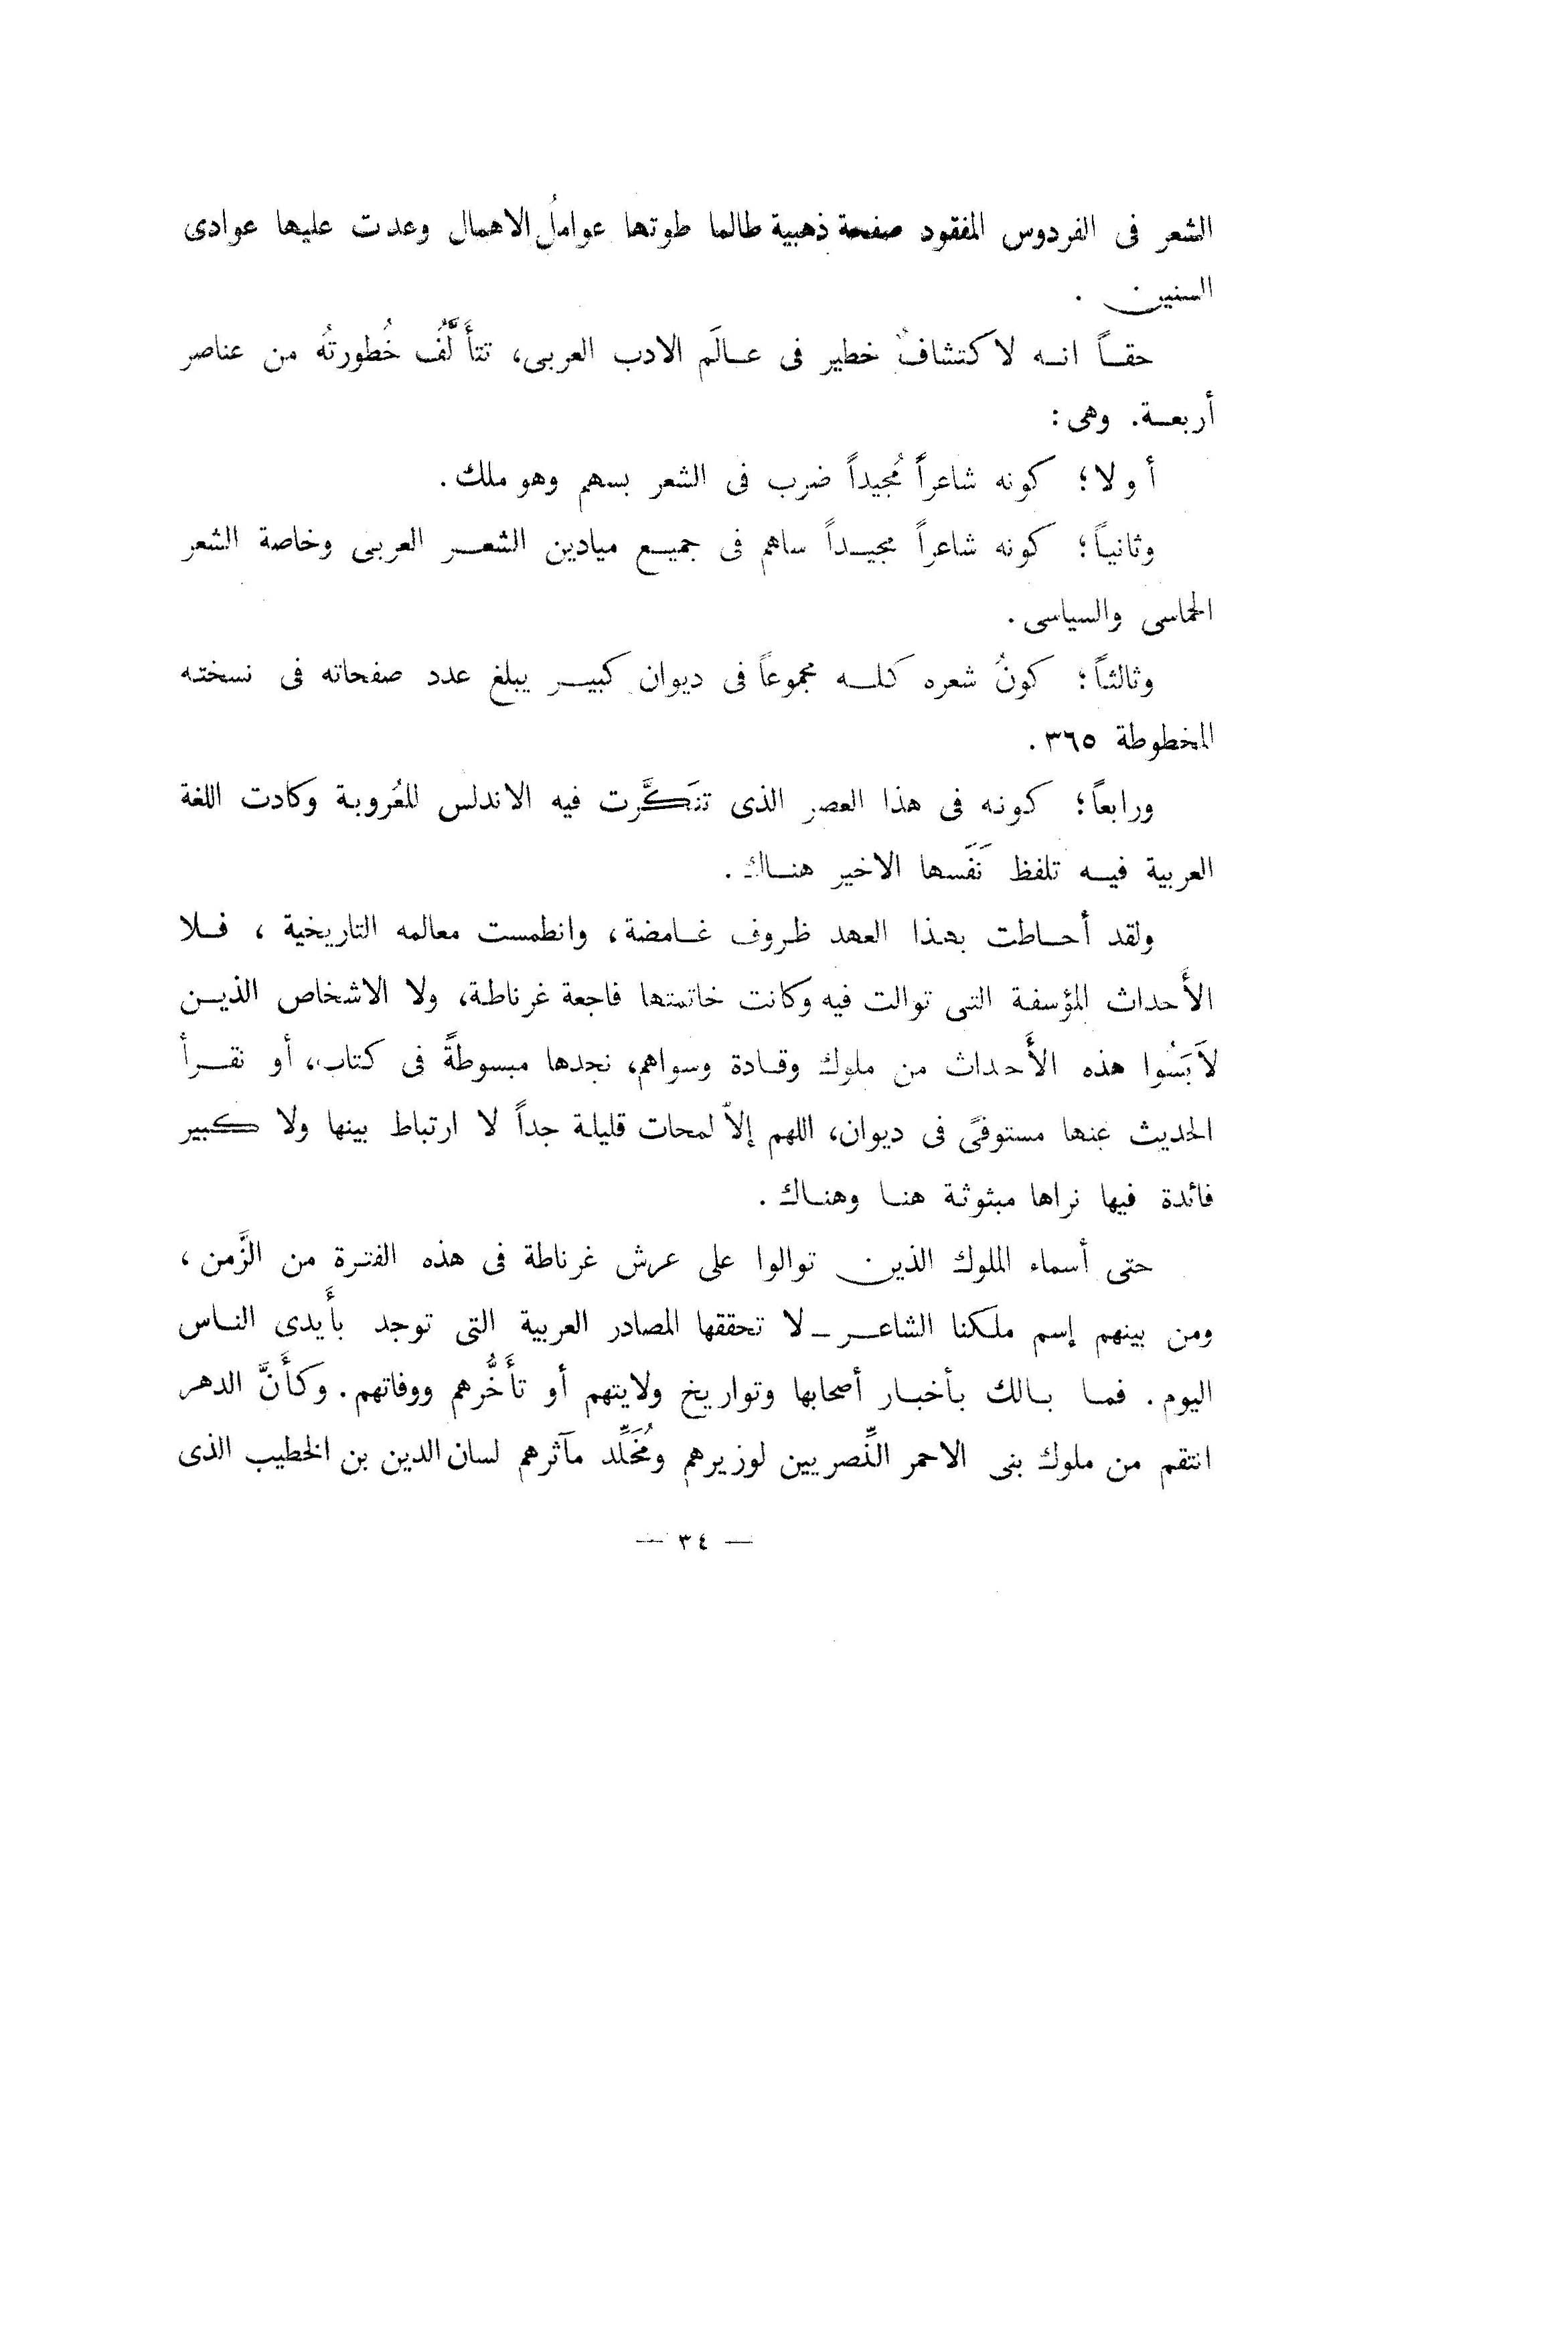 الشعر فى الفردوس المفقود صفحة ذهبية طالما طوتها عواملُ الاهمال وعدت عليها عوادى
السنين .
حقـاً انـه لاكتشافٌ خطير فى عـالَم الادب العربى، تتأَلَّفُ خُطورتهُ من عناصر
أربعـة. وهى :
أولا؛ كونه شاعراً مُجيداً ضرب فى الشعر بسهم وهو ملك .
وثانياً؛ كونه شاعراً مجيـداً ساهم فى جميـع ميادين الشعـر العربى وخاصة الشعر
الحماسى والسياسى .
وثالثاً؛ كونُ شعره كلـه مجموعاً فى ديوان كبيـر يبلغ عدد صفحاته فى نسخته
المخطوطة ٣٦٥ .
ورابعاً؛ كونه فى هذا العصر الذى تنَكَّرت فيه الاندلس للعُروبة وكادت اللغة
العربية فيـه تلفظ نَفَسها الاخير هنـاك .
ولقد أحـاطت بهذا العهد ظروف غـامضة، وانطمست معالمه التاريخية ، فـلا
الأَحداث المؤسفة التى توالت فيه وكانت خاتمتها فاجعة غرناطة، ولا الاشخاص الذيـن
لاَبَسُوا هذه الأَحداث من ملوك وقـادة وسواهم، نجدها مبسوطةً فى كتاب، أو نقـرأ
الحديث عنها مستوفىً فى ديوان، اللهم إلاّ لمحات قليلة جداً لا ارتباط بينها ولا كبير
فائدة فيها نراها مبثوثة هنـا وهنـاك .
حتى أسماء الملوك الذين توالوا على عرش غرناطة فى هذه الفترة من الزَّمن ،
ومن بينهم إسم ملكنا الشاعـر ـ لا تحققها المصادر العربية التى توجد بأَيدى النـاس
اليوم . فمـا بـالك بـأخبـار أصحابها وتواريخ ولايتهم أو تأَخُّرهم ووفاتهم . وكأَنَّ الدهر
انتقم من ملوك بنى الاحمر النِّصريين لوزيرهم ومُخَلِّد مآثرهم لسان الدين بن الخطيب الذى
— ٣٤ —